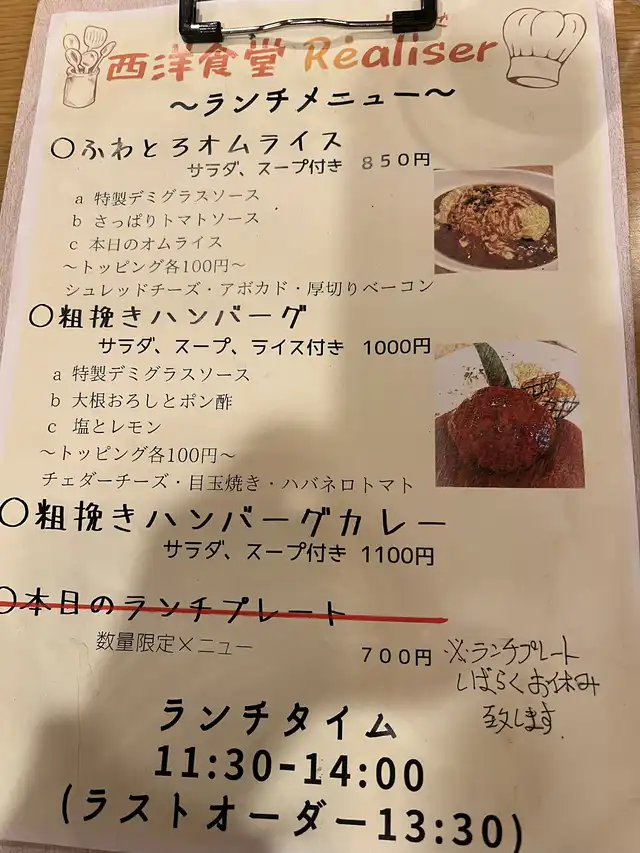 西洋食堂 Réaliser
～ランチメニュー～
〇ふわとろオムライス
サラダ、スープ付き 850円
a 特製デミグラスソース
b さっぱりトマトソース
c 本日のオムライス
～トッピング各100円～
シュレッドチーズ・アボカド・厚切りベーコン
〇粗挽きハンバーグ
サラダ、スープ、ライス付き 1000円
a 特製デミグラスソース
b 大根おろしとポン酢
c 塩とレモン
～トッピング各100円～
チェダーチーズ・目玉焼き・ハバネロトマト
〇粗挽きハンバーグカレー
サラダ、スープ付き 1100円
〇本日のランチプレート
数量限定メニュー
700円
※ランチプレート
しばらくお休み
致します。
ランチタイム
11:30-14:00
(ラストオーダー13:30)